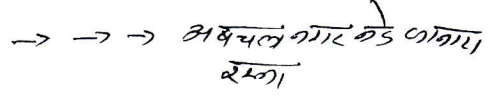 → → → अबचल नगर कडे जाणारा
रस्ता